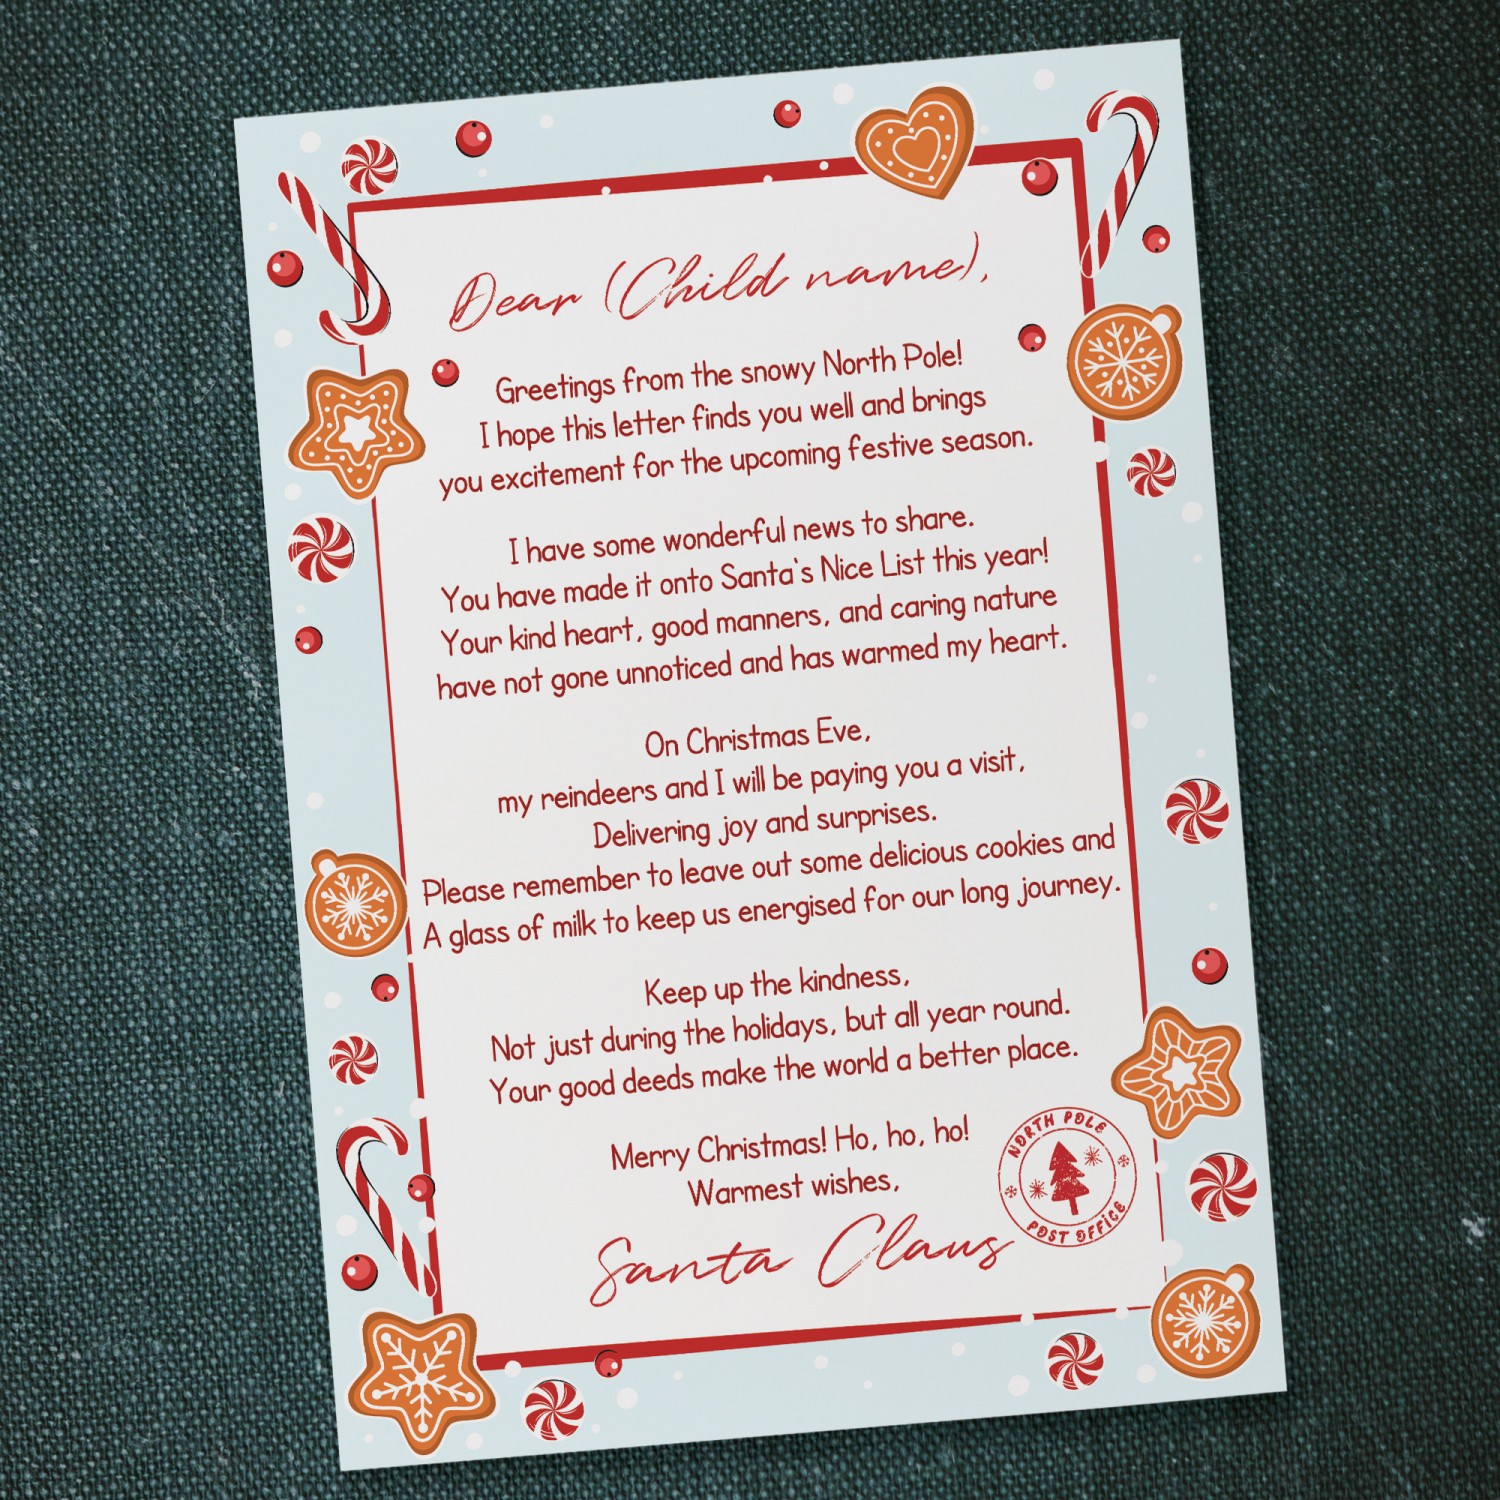 Dear (Child name),
Greetings from the snowy North Pole!
I hope this letter finds you well and brings
you excitement for the upcoming festive season.
I have some wonderful news to share.
You have made it onto Santa's Nice List this year!
Your kind heart, good manners, and caring nature
have not gone unnoticed and has warmed my heart.
On Christmas Eve,
my reindeers and I will be paying you a visit,
Delivering joy and surprises.
Please remember to leave out some delicious cookies and
A glass of milk to keep us energised for our long journey.
Keep up the kindness,
Not just during the holidays, but all year round.
Your good deeds make the world a better place.
Merry Christmas! Ho, ho, ho!
Warmest wishes,
Santa Claus
NORTH POLE
POST OFFICE